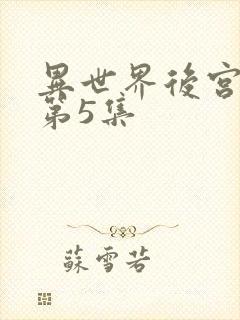 異世界後宮
第5集
蘇雪若